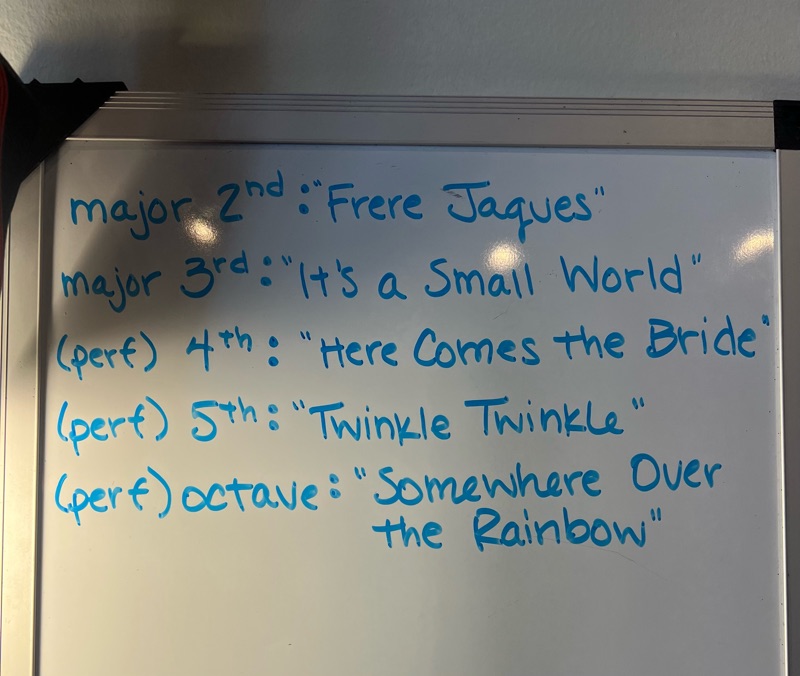 major 2nd: "Frere Jaques"
major 3rd: "It's a Small World"
(perf) 4th: "Here Comes the Bride"
(perf) 5th: "Twinkle Twinkle"
(perf) octave: "Somewhere Over
the Rainbow"